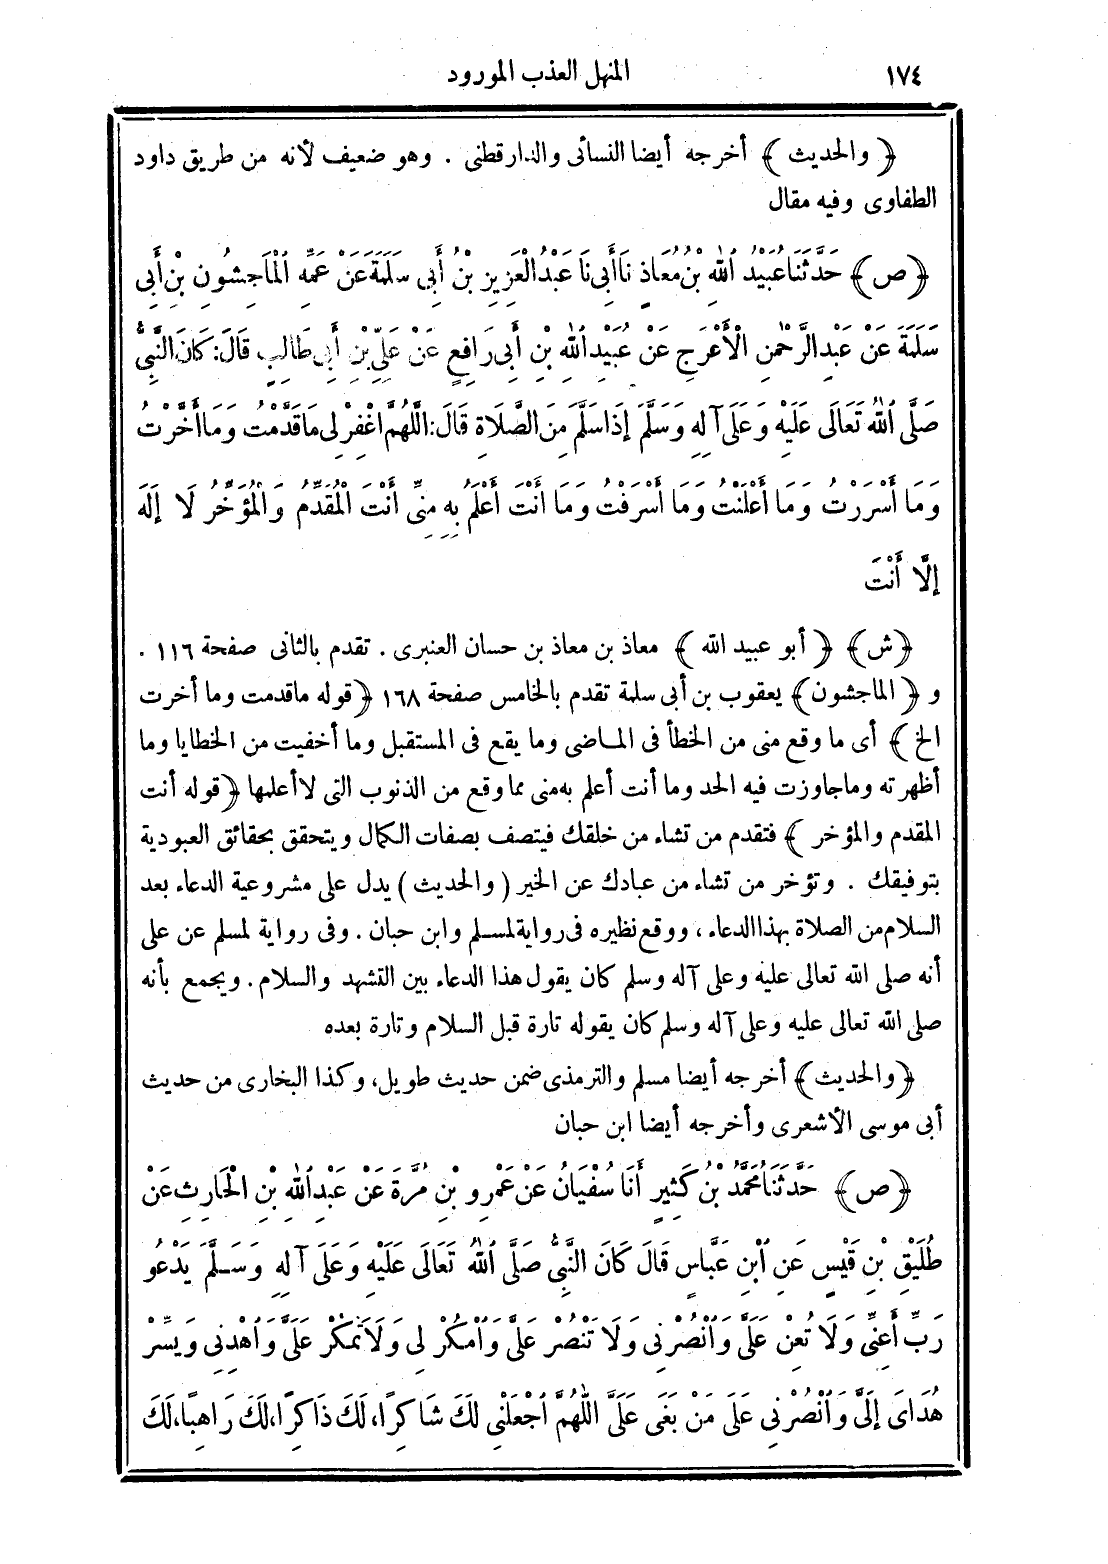 ١٧٤ المنهل العذب المورود
﴿ والحديث ﴾ أخرجه أيضا النسائى والدارقطنى . وهو ضعيف لأنه من طريق داود
الطفاوى وفيه مقال
﴿ص﴾ حَدَّثَنَا عُبَيْدُ اللهِ بْنُ مُعَاذٍ نَا أَبِى نَا عَبْدُ الْعَزِيزِ بْنُ أَبِى سَلَمَةَ عَنْ عَمِّهِ الْمَاجِشُونِ بْنِ أَبِى
سَلَمَةَ عَنْ عَبْدِ الرَّحْمٰنِ الْأَعْرَجِ عَنْ عُبَيْدِ اللهِ بْنِ أَبِى رَافِعٍ عَنْ عَلِىِّ بْنِ أَبِى طَالِبٍ قَالَ: كَانَ النَّبِىُّ
صَلَّى اللهُ تَعَالَى عَلَيْهِ وَعَلَى آلِهِ وَسَلَّمَ إِذَا سَلَّمَ مِنَ الصَّلَاةِ قَالَ: اللَّهُمَّ اغْفِرْ لِى مَا قَدَّمْتُ وَمَا أَخَّرْتُ
وَمَا أَسْرَرْتُ وَمَا أَعْلَنْتُ وَمَا أَسْرَفْتُ وَمَا أَنْتَ أَعْلَمُ بِهِ مِنِّى أَنْتَ الْمُقَدِّمُ وَالْمُؤَخِّرُ لَا إِلَهَ
إِلَّا أَنْتَ
﴿ش﴾ ﴿أبو عبيد الله ﴾ معاذ بن معاذ بن حسان العنبرى . تقدم بالثانى صفحة ١١٦ .
و ﴿ الماجشون﴾ يعقوب بن أبى سلمة تقدم بالخامس صفحة ١٦٨ ﴿قوله ماقدمت وما أخرت
الخ ﴾ أى ما وقع منى من الخطأ فى المـاضى وما يقع فى المستقبل وما أخفيت من الخطايا وما
أظهرته وماجاوزت فيه الحد وما أنت أعلم به منى مما وقع من الذنوب التى لاأعلمها ﴿قوله أنت
المقدم والمؤخر ﴾ فتقدم من تشاء من خلقك فيتصف بصفات الكمال ويتحقق بحقائق العبودية
بتوفيقك . وتؤخر من تشاء من عبادك عن الخير ( والحديث ) يدل على مشروعية الدعاء بعد
السلام من الصلاة بهذا الدعاء ، ووقع نظيره فى رواية لمسلم وابن حبان . وفى رواية لمسلم عن على
أنه صلى الله تعالى عليه وعلى آله وسلم كان يقول هذا الدعاء بين التشهد والسلام . ويجمع بأنه
صلى الله تعالى عليه وعلى آله وسلم كان يقوله تارة قبل السلام وتارة بعده
﴿والحديث﴾ أخرجه أيضا مسلم والترمذى ضمن حديث طويل، وكذا البخارى من حديث
أبى موسى الأشعرى وأخرجه أيضا ابن حبان
﴿ص﴾ حَدَّثَنَا مُحَمَّدُ بْنُ كَثِيرٍ أَنَا سُفْيَانُ عَنْ عَمْرِو بْنِ مُرَّةَ عَنْ عَبْدِ اللهِ بْنِ الْحَارِثِ عَنْ
طُلَيْقِ بْنِ قَيْسٍ عَنِ ابْنِ عَبَّاسٍ قَالَ كَانَ النَّبِىُّ صَلَّى اللهُ تَعَالَى عَلَيْهِ وَعَلَى آلِهِ وَسَـلَّمَ يَدْعُو
رَبِّ أَعِنِّى وَلَا تُعِنْ عَلَىَّ وَانْصُرْنِى وَلَا تَنْصُرْ عَلَىَّ وَامْكُرْ لِى وَلَا تَمْكُرْ عَلَىَّ وَاهْدِنِى وَيَسِّرْ
هُدَاىَ إِلَىَّ وَانْصُرْنِى عَلَى مَنْ بَغَى عَلَىَّ اللَّهُمَّ اجْعَلْنِى لَكَ شَاكِرًا، لَكَ ذَاكِرًا، لَكَ رَاهِبًا، لَكَ